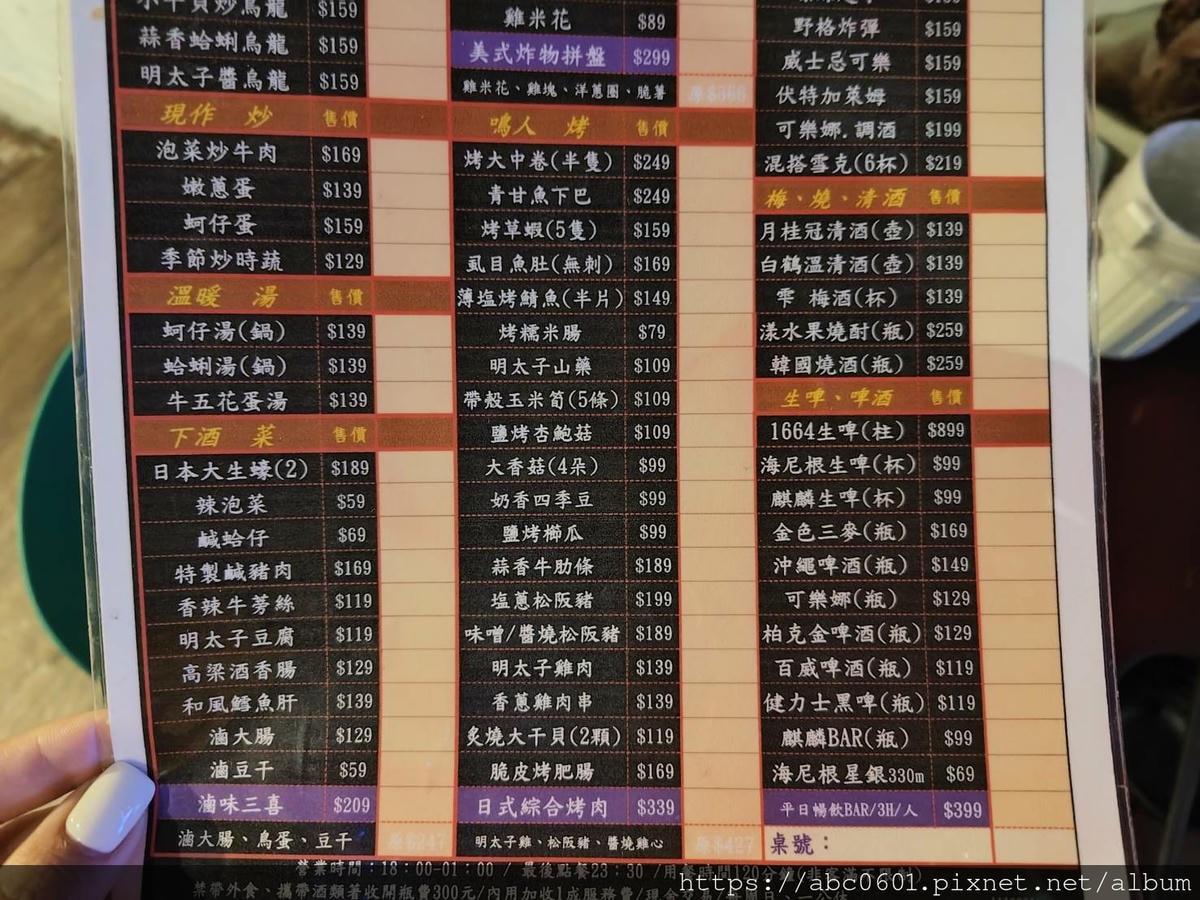 炒烏龍 $159
蒜香蛤蜊烏龍 $159
明太子醬烏龍 $159
現作 炒 售價
泡菜炒牛肉 $169
嫩蔥蛋 $139
蚵仔蛋 $159
季節炒時蔬 $129
溫暖 湯 售價
蚵仔湯(鍋) $139
蛤蜊湯(鍋) $139
牛五花蛋湯 $139
下酒 菜 售價
日本大生蠔(2) $189
辣泡菜 $59
鹹蛤仔 $69
特製鹹豬肉 $169
香辣牛蒡絲 $119
明太子豆腐 $119
高梁酒香腸 $129
和風鱈魚肝 $139
滷大腸 $129
滷豆干 $59
滷味三喜 $209
滷大腸、鳥蛋、豆干 原$247
雞米花 $89
美式炸物拼盤 $299
雞米花、雞塊、洋蔥圈、脆薯
鳴人 烤 售價
烤大中卷(半隻) $249
青甘魚下巴 $249
烤草蝦(5隻) $159
虱目魚肚(無刺) $169
薄塩烤鯖魚(半片) $149
烤糯米腸 $79
明太子山藥 $109
帶殼玉米筍(5條) $109
鹽烤杏鮑菇 $109
大香菇(4朵) $99
奶香四季豆 $99
鹽烤櫛瓜 $99
蒜香牛肋條 $189
塩蔥松阪豬 $199
味噌/醬燒松阪豬 $189
明太子雞肉 $139
香蔥雞肉串 $139
炙燒大干貝(2顆) $119
脆皮烤肥腸 $169
日式綜合烤肉 $339
明太子雞、松阪豬、醬燒雞心 原$427
野格炸彈 $159
威士忌可樂 $159
伏特加萊姆 $159
可樂娜.調酒 $199
混搭雪克(6杯) $219
梅、燒、清酒 售價
月桂冠清酒(壺) $139
白鶴溫清酒(壺) $139
雫 梅酒(杯) $139
漾水果燒酎(瓶) $259
韓國燒酒(瓶) $259
生啤、啤酒 售價
1664生啤(柱) $899
海尼根生啤(杯) $99
麒麟生啤(杯) $99
金色三麥(瓶) $169
沖繩啤酒(瓶) $149
可樂娜(瓶) $129
柏克金啤酒(瓶) $129
百威啤酒(瓶) $119
健力士黑啤(瓶) $119
麒麟BAR(瓶) $99
海尼根星銀330m $69
平日暢飲BAR/3H/人 $399
桌號：
營業時間：18：00-01：00 / 最後點餐23：30 /用餐時間120分鐘(非客滿不限制)
禁帶外食、攜帶酒類著收開瓶費300元/內用加收1成服務費/現金交易/每
https://abc0601.pixnet.net/album